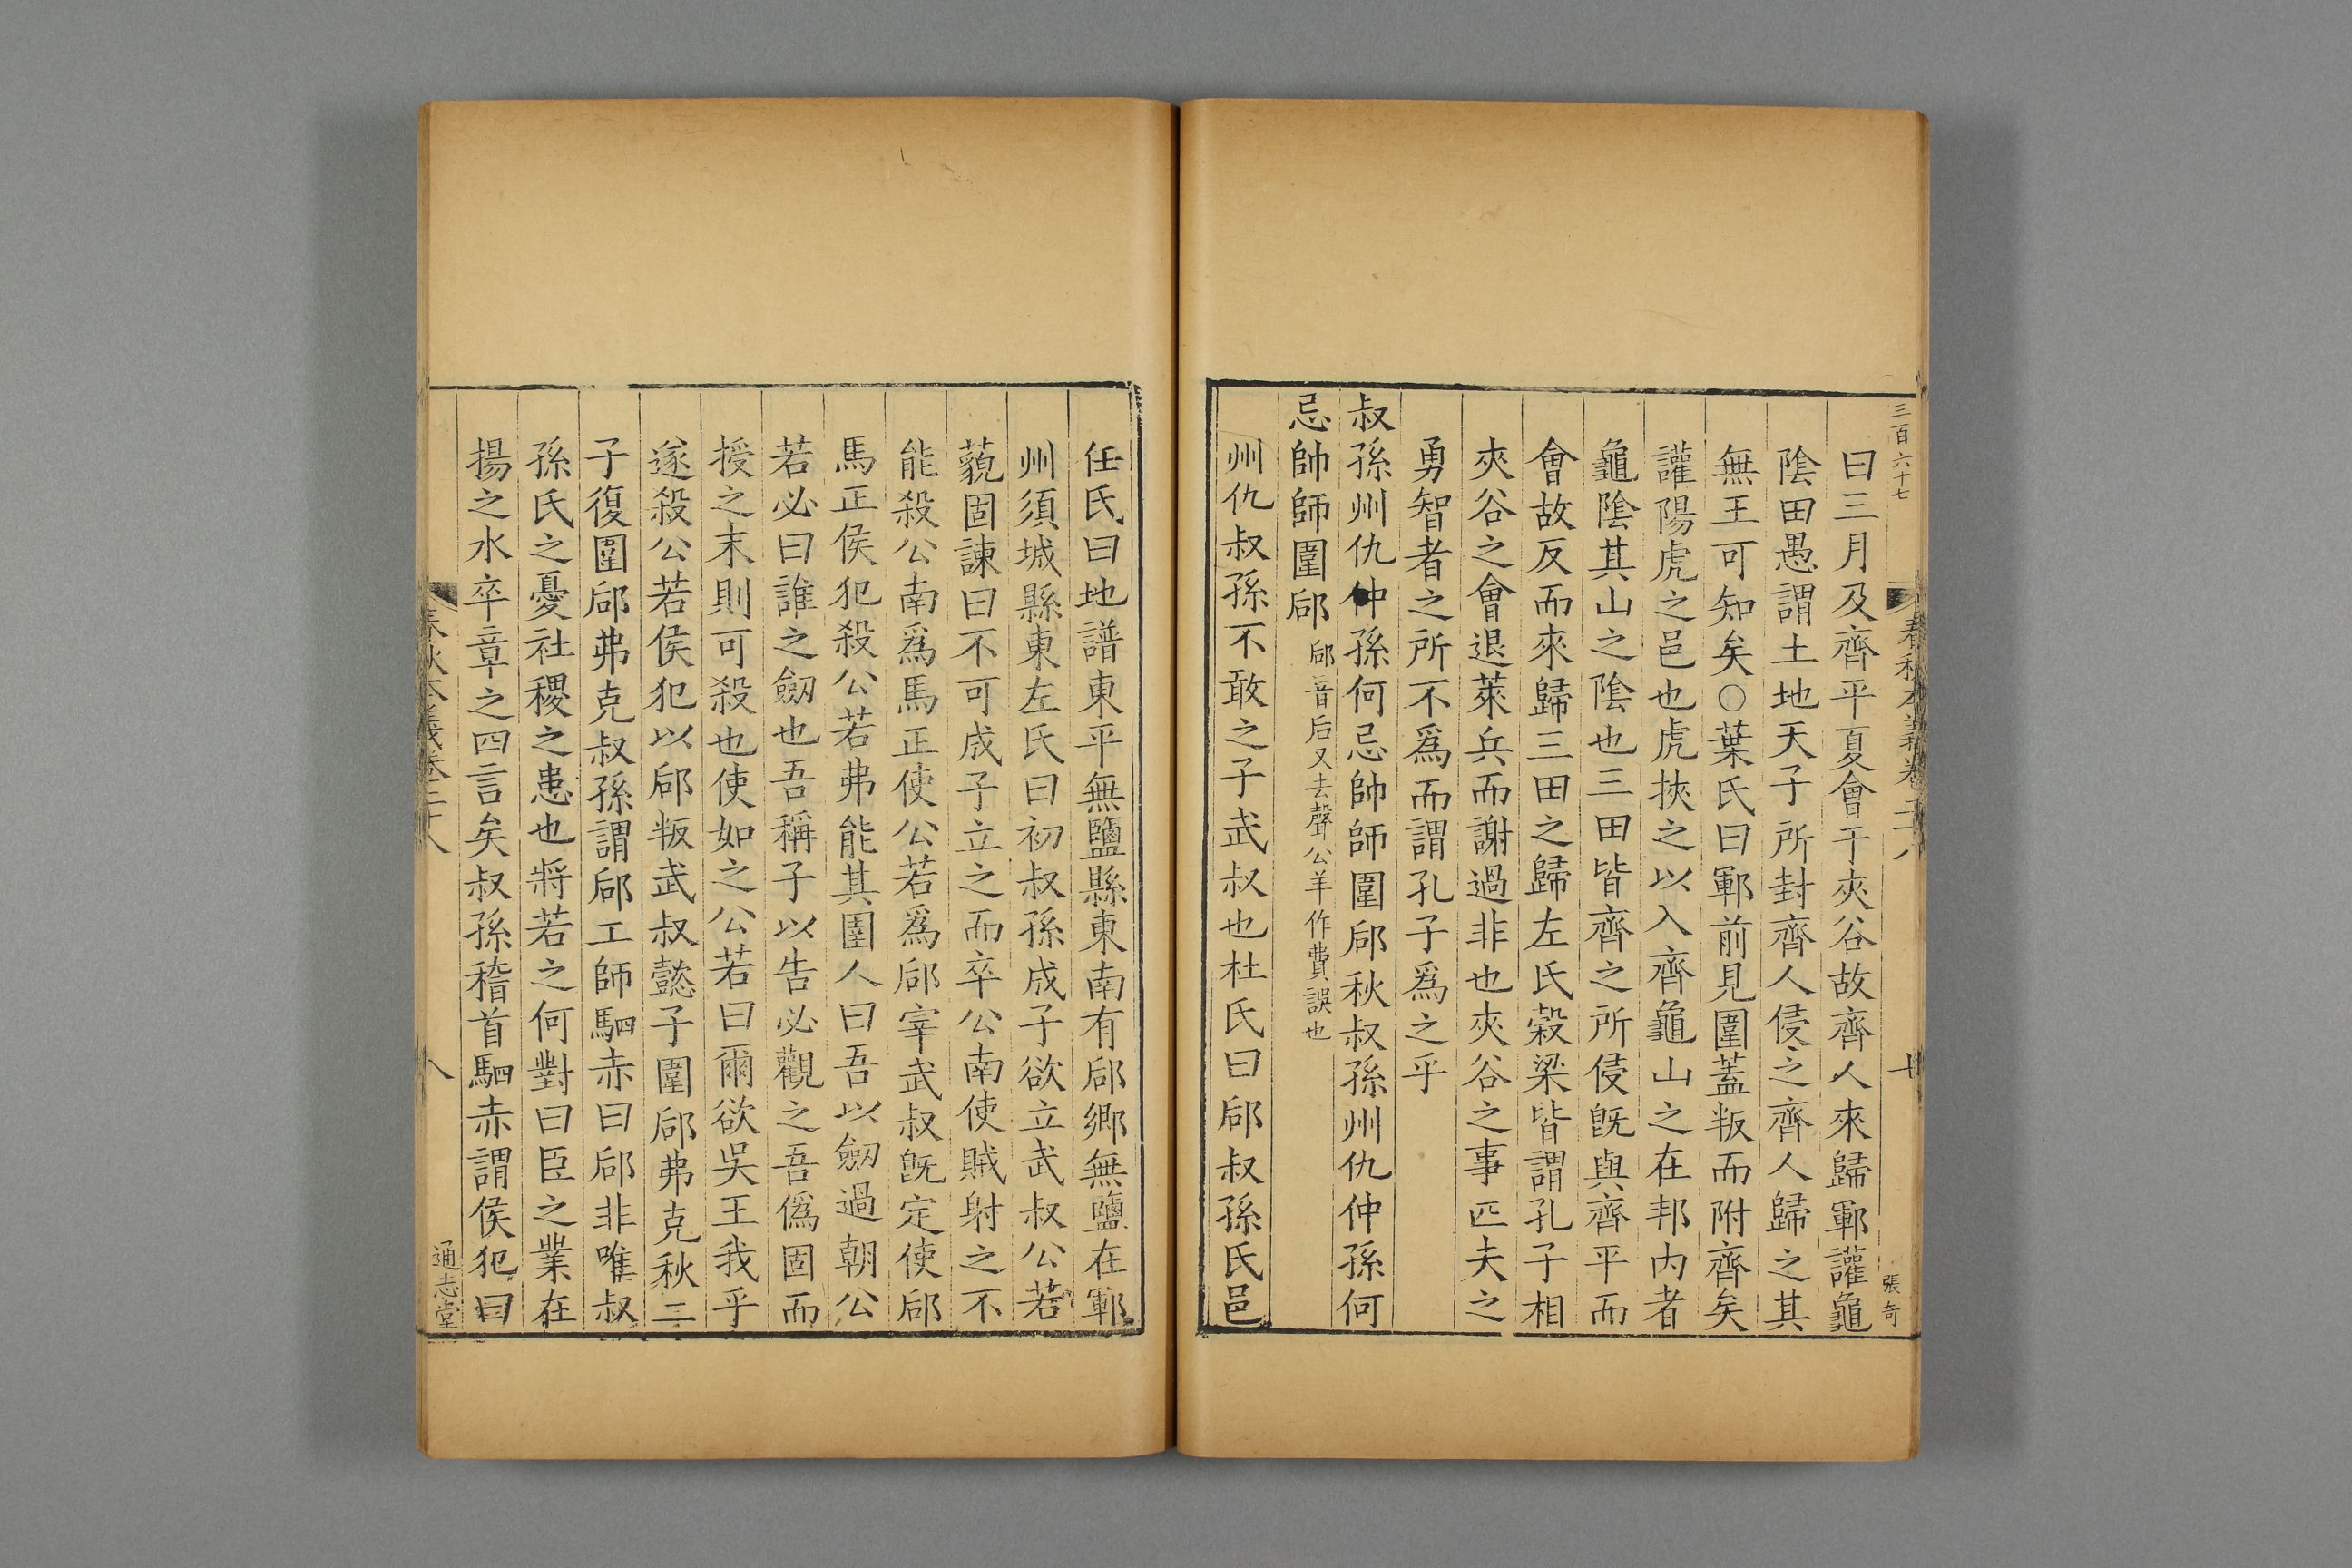 三百六十七
春秋本義卷二十八
張奇
曰三月及齊平夏會于夾谷故齊人來歸鄆讙龜
陰田愚謂土地天子所封齊人侵之齊人歸之其
無王可知矣○葉氏曰鄆前見圍蓋叛而附齊矣
讙陽虎之邑也虎挾之以入齊龜山之在邦内者
龜陰其山之陰也三田皆齊之所侵旣與齊平而
會故反而來歸三田之歸左氏穀梁皆謂孔子相
夾谷之會退萊兵而謝過非也夾谷之事匹夫之
勇智者之所不爲而謂孔子爲之乎
叔孫州仇仲孫何忌帥師圍郈秋叔孫州仇仲孫何
忌帥師圍郈郈音后又去聲公羊作費誤也
州仇叔孫不敢之子武叔也杜氏曰郈叔孫氏邑
任氏曰地譜東平無鹽縣東南有郈鄉無鹽在鄆
州須城縣東左氏曰初叔孫成子欲立武叔公若
藐固諫曰不可成子立之而卒公南使賊射之不
能殺公南爲馬正使公若爲郈宰武叔旣定使郈
馬正侯犯殺公若弗能其圉人曰吾以劒過朝公
若必曰誰之劒也吾稱子以告必觀之吾僞固而
授之末則可殺也使如之公若曰爾欲吳王我乎
遂殺公若侯犯以郈叛武叔懿子圍郈弗克秋二
子復圍郈弗克叔孫謂郈工師駟赤曰郈非唯叔
孫氏之憂社稷之患也將若之何對曰臣之業在
揚之水卒章之四言矣叔孫稽首駟赤謂侯犯曰
春秋本義卷二十八
八
通志堂